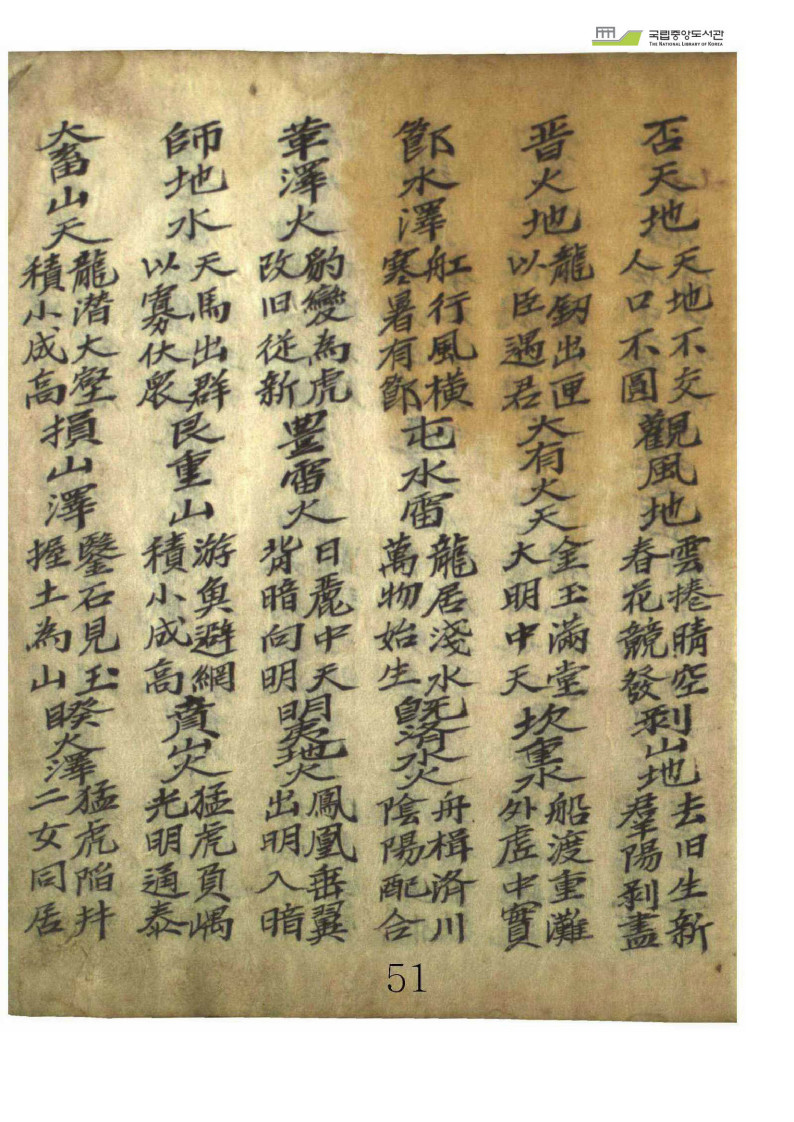 국립중앙도서관
THE NATIONAL LIBRARY OF KOREA
否天地 天地不交 人口不圓 觀風地 雲捲晴空 春花競發 剥山地 去旧生新 羣陽剥盡
晋火地 龍釼出匣 以臣遇君 大有火天 金玉滿堂 大明中天 坎重水 船渡重灘 外虛中實
節水澤 舡行風橫 寒暑有節 屯水雷 龍居淺水 萬物始生 旣濟水火 舟楫濟川 陰陽配合
革澤火 豹變為虎 改旧從新 豊雷火 日麗中天 背暗向明 明夷地火 鳳凰垂翼 出明入暗
師地水 天馬出群 以寡伏衆 艮重山 游魚避網 積小成高 賁山火 猛虎負嵎 光明通泰
大畜山天 龍潛大壑 積小成高 損山澤 鑿石見玉 握土為山 睽火澤 猛虎陷井 二女同居
51